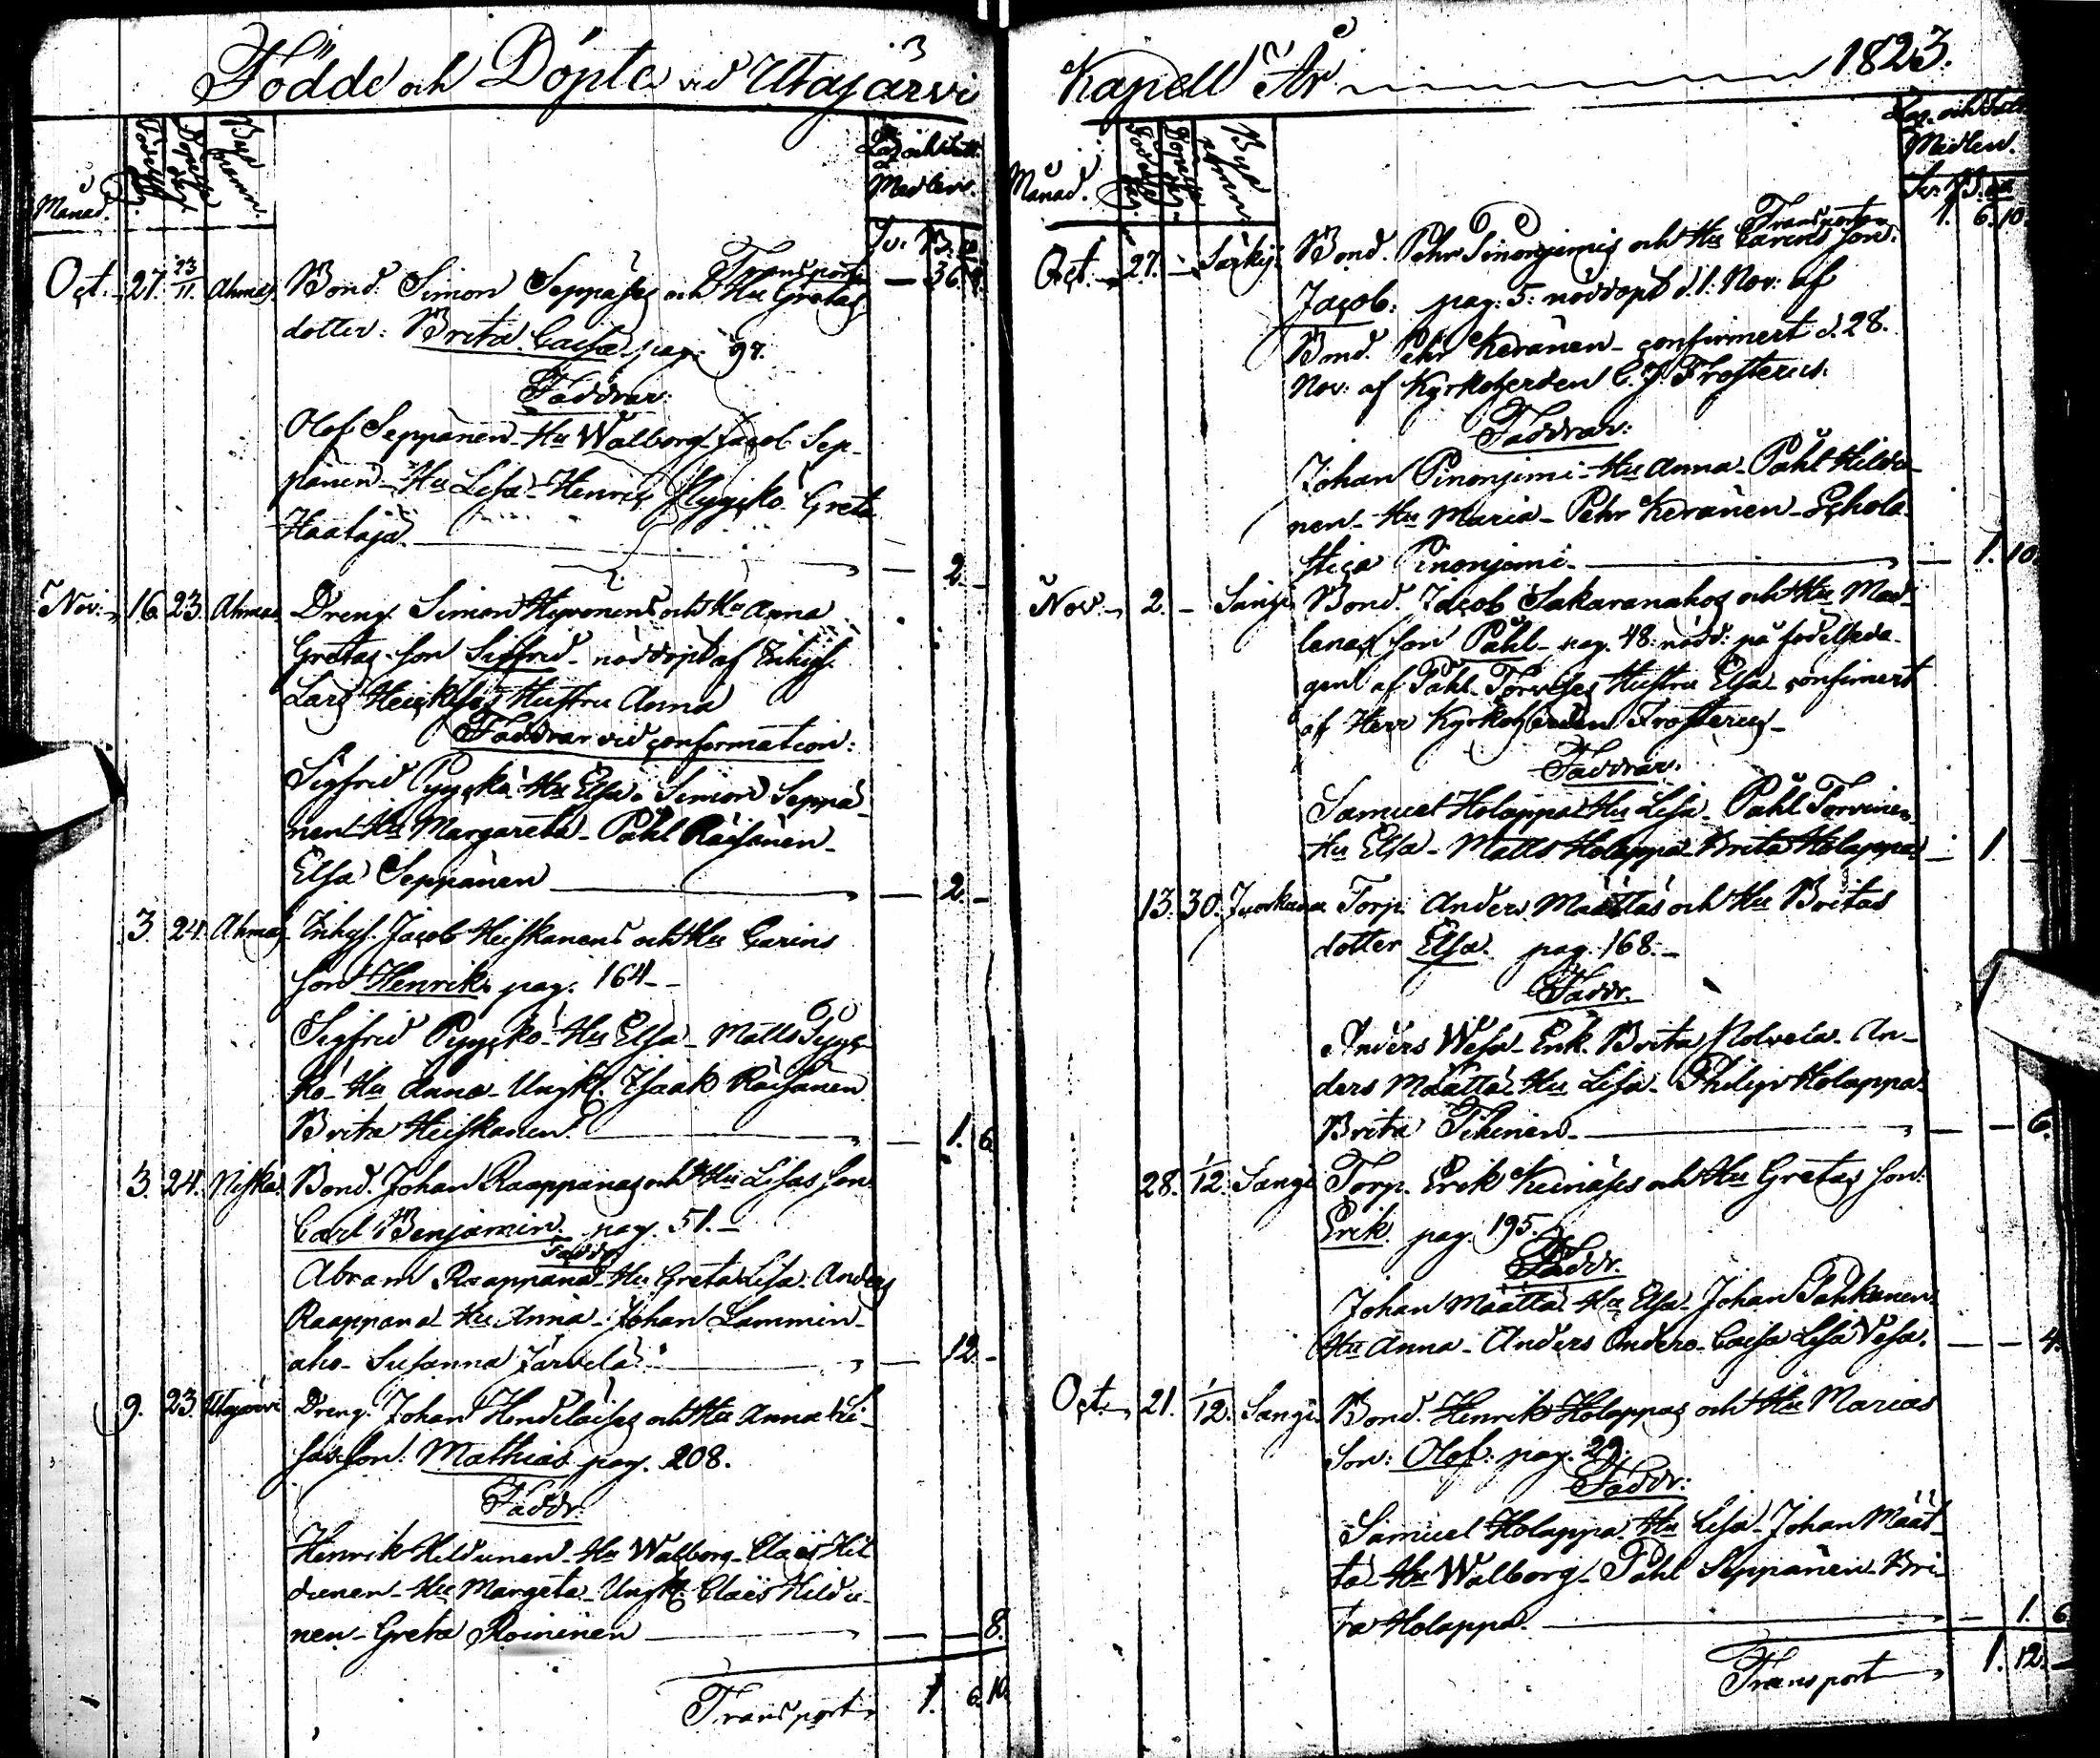 Födde och Döpte vid Utajärvi
Månad.
Födelse dag.
Döpelse dag.
Bya namn.
Laz. och Bått.
Medlen.
Transport
Oct. 27. 23/11. Ahmas Bond. Simon Seppäses och Hu Gretas
dotter: Brita Caisa pag. 97.
Faddrar:
Olof Seppänen - Hu Walborg - Jacob Sep-
pänen - Hu Lisa - Henric Pyyckö Greta
Haataja. — 2. -
Nov. 16. 23. Ahmas Dreng. Simon Hyvönens och Hu Anna
Gretas son Sigfrid - nöddöpt af Inhys.
Lars Heickises Hustru Anna
Faddrar vid confirmation:
Sigfrid Pyyckö Hu Elsa - Simon Seppä-
nen Hu Margareta - Påhl Räisänen -
Elsa Seppänen — 2. -
3. 24. Ahmas Inhys. Jacob Heiskanens och Hu Carins
son Henrik. pag. 164 -
Sigfrid Pyyckö - Hu Elsa - Matts Pyyc-
kö - Hu Anna - Ungk. Isaak Räisänen
Brita Heiskanen. — 1. 6
3. 24. Niska. Bond. Johan Raappanas och Hu Lisas son
Carl Benjamin. pag. 51. -
Faddr.
Abram Raappana - Hu Greta Lisa - Anders
Raappana - Hu Anna - Johan Lammin-
aho - Susanna Järvelä. — 12. -
9. 23. Utajärvi Dreng. Johan Hendeläises och Hu Anna Li-
sas son: Mathias pag. 208.
Faddr.
Henrik Hildunen - Hu Walborg - Claës Hil
dunen - Hu Margeta - Ungk. Claës Hildu-
nen - Greta Roininen — — 8.
Transport 1. 6. 10.
Kapell År 1823.
Månad.
Födelse dag.
Döpelse dag.
Bya namn.
Laz. och Bått
Medlen.
Transport 1. 6. 10.
Oct. 27. - Särkij. Bond. Pehr Pinonjemis och Hu Carins son.
Jacob: pag: 5: nöddöpt d. 1. Nov: af
Bond. Pehr Keränen - confirmert d. 28.
Nov: af Kyrkoherden C. J. Frosterus.
Faddrar:
Johan Pinonjemi - Hu Anna - Påhl Hildu-
nen - Hu Maria - Pehr Keränen - Schola-
stica Pinonjemi. — 1. 10.
Nov. 2. - Sangi. Bond. Jacob Sakaranahos och Hu Mad-
lenas son Påhl - pag. 48: nödd: på födelseda-
gen af Påhl Törvises Hustru Elsa confirmert
af Herr Kyrkoherden Frosterus -
Faddrar.
Samuel Holappa Hu Lisa - Påhl Törvinen
Hu Elsa - Matts Holappa - Brita Holappa — 1. -
13. 30. Juorkuna Torp. Anders Määttäs och Hu Britas
dotter Elsa. pag. 168. -
Faddr.
Anders Wesa - Enk. Brita Holvela - An-
ders Määttä - Hu Lisa - Philip Holappa -
Brita Tihinen. — — 6.
28. 1/12. Sangi Torp. Erik Keinäses och Hu Gretas son:
Erik. pag. 195.
Faddr.
Johan Määttä - Hu Elsa - Johan Pahkanen.
Hu Anna - Anders Anders - Caisa Lisa Vesa. — — 4.
Oct. 21. 1/12. Sangi. Bond. Henrik Holappas och Hu Marias
Son: Olof: pag. 29.
Faddr:
Samuel Holappa. Hu Lisa - Johan Määt-
tä - Hu Walborg - Påhl Seppänen - Bri-
ta Holappa. — 1. 6.
Transport 1. 12. -